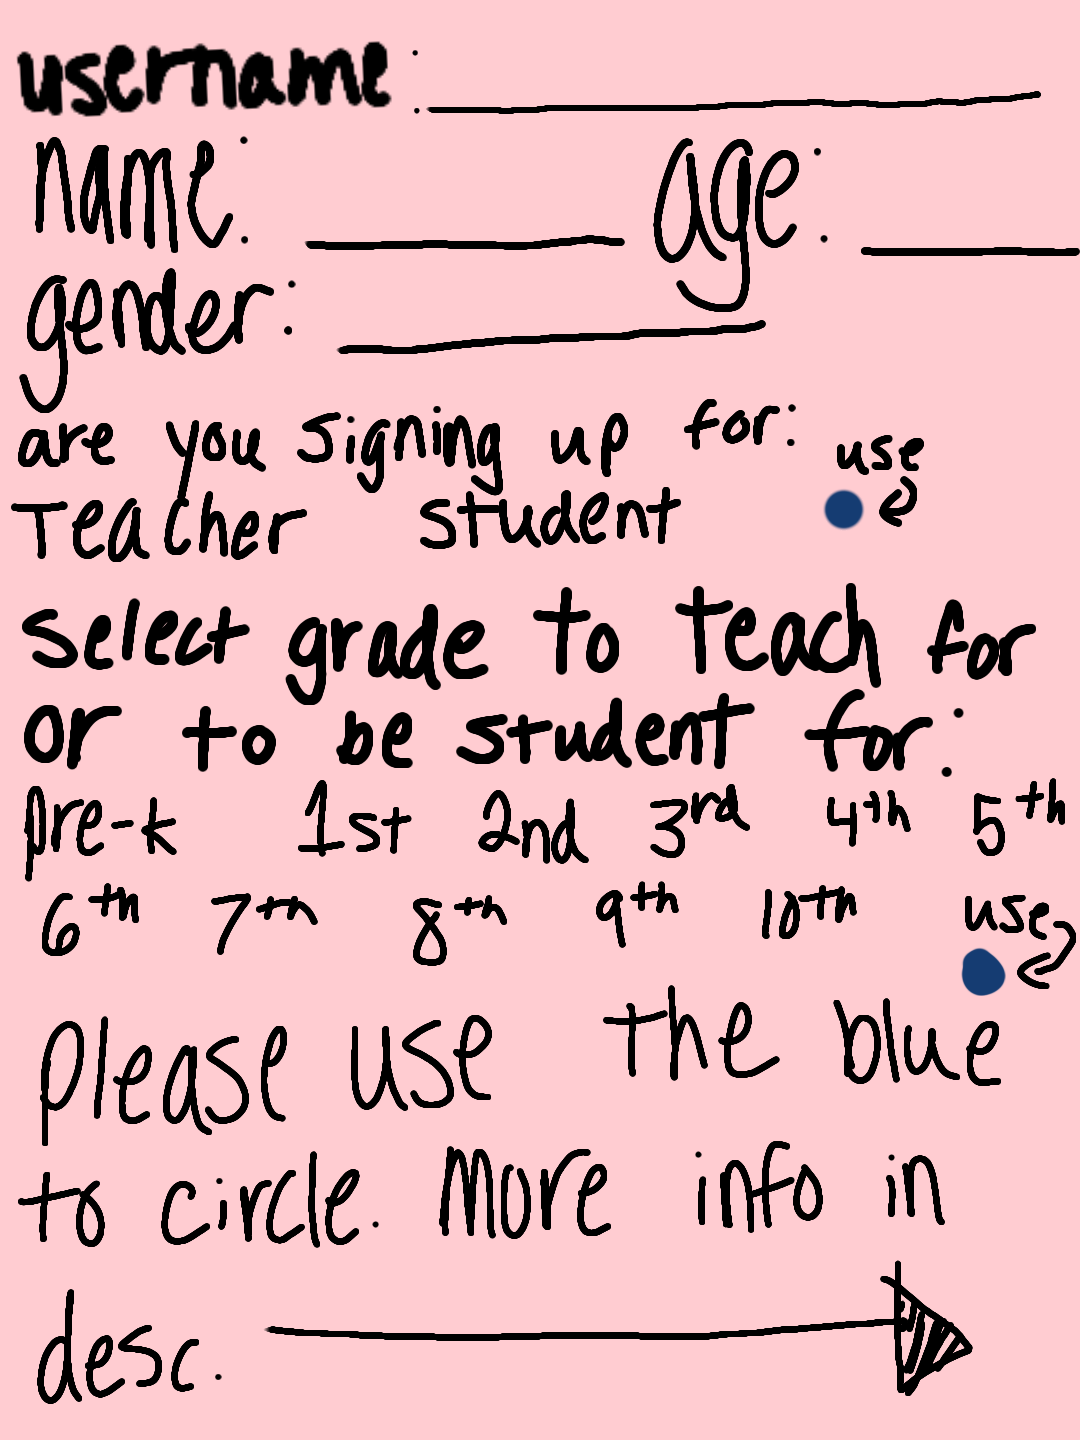 username:
name: age:
gender:
are you signing up for: use
Teacher student
select grade to teach for
or to be student for:
pre-k 1st 2nd 3rd 4th 5th
6th 7th 8th 9th 10th use
please use the blue
to circle. More info in
desc.